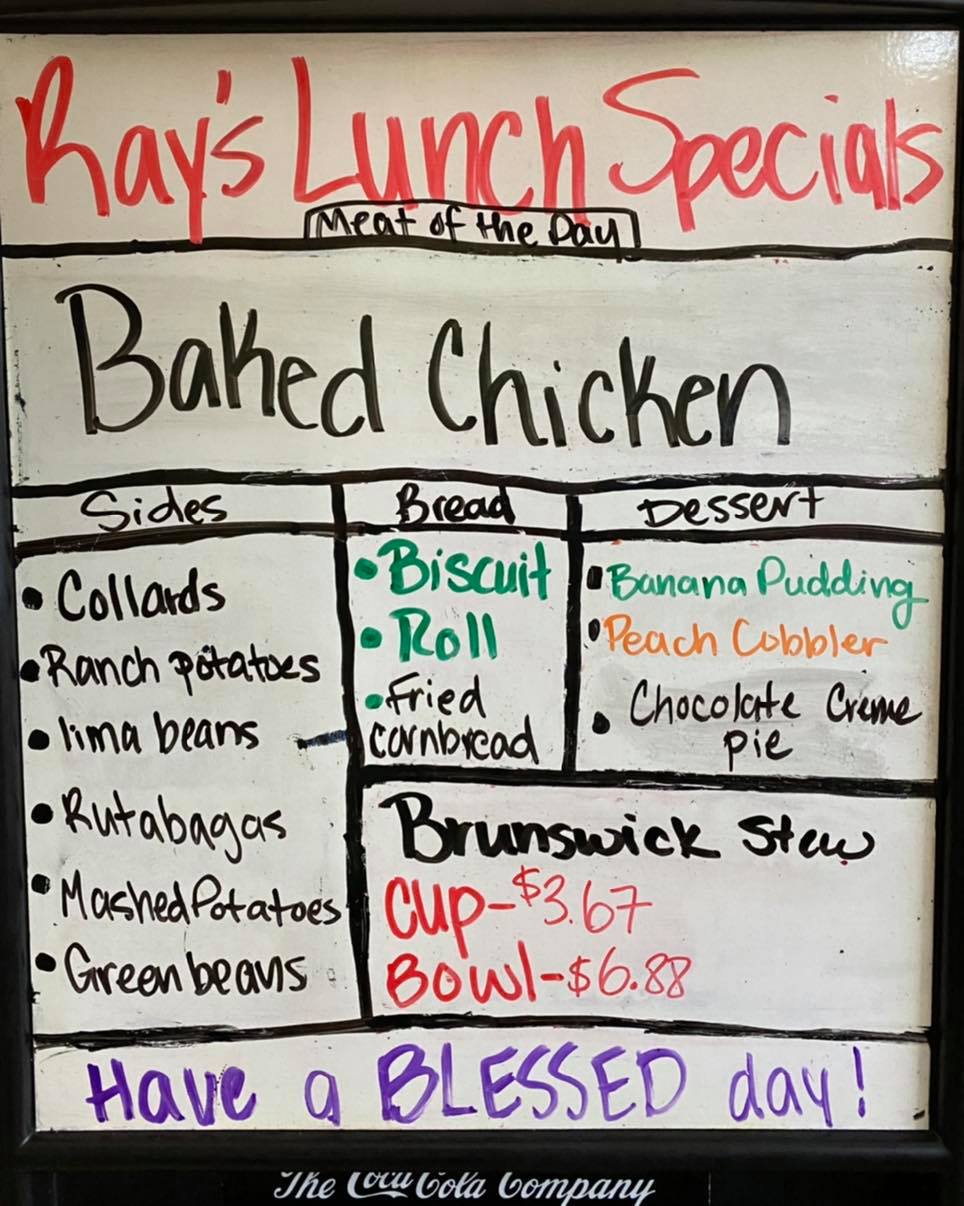 Ray's Lunch Specials
Meat of the Day
Baked Chicken
Sides
• Collards
• Ranch potatoes
• lima beans
• Rutabagas
• Mashed Potatoes
• Green beans
Bread
• Biscuit
• Roll
• Fried
cornbread
Dessert
• Banana Pudding
• Peach Cobbler
• Chocolate Creme
pie
Brunswick Stew
Cup-$3.67
Bowl-$6.88
Have a BLESSED day!
The Coca Cola Company